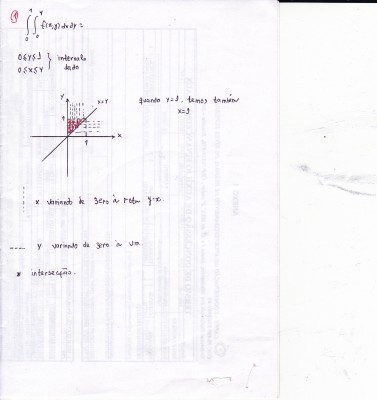 ① ∫₀¹ ∫₀ʸ f(x,y) dx dy =
0≤y≤1 } intervalo
0≤x≤y } dado
Y x=y
quando y=1. temos também
x=1
1
x
1
x variando de zero à reta y=x.
---- y variando de zero à
* intersecção.